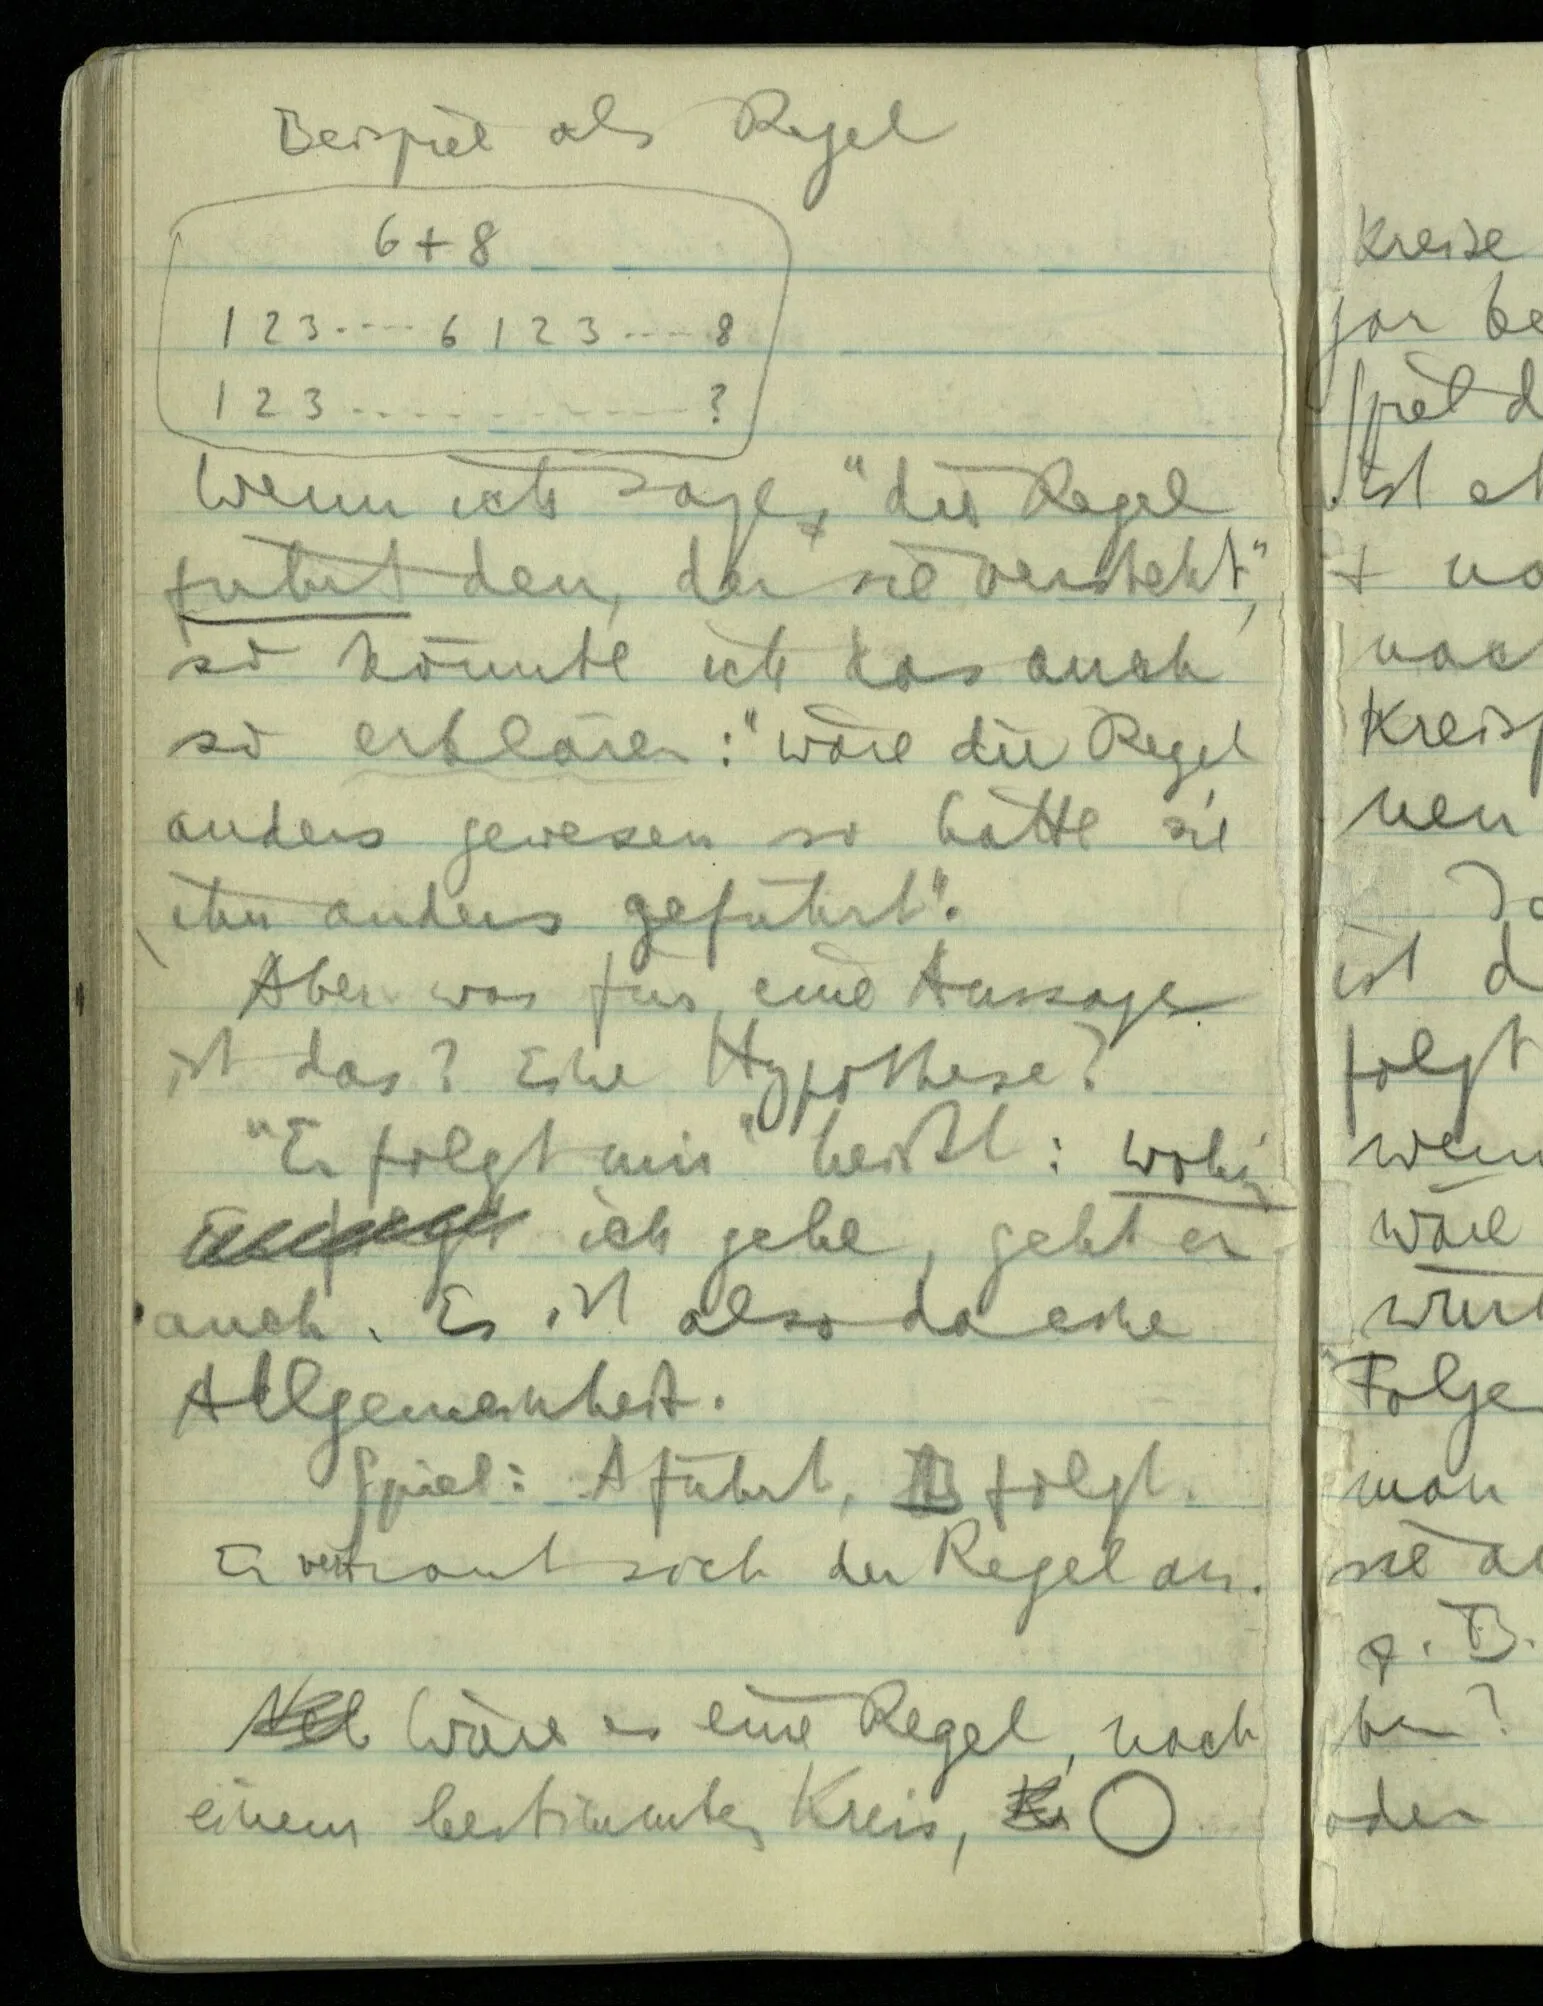 Beispiel als Regel
6+8
1 2 3 .... 6 1 2 3 .... 8
1 2 3 ............ ?
Wenn ich sage, "die Regel
führt den, der sie versteht",
so könnte ich das auch
so erklären: "wäre die Regel
anders gewesen so hätte sie
ihn anders geführt".
Aber was für eine Aussage
ist das? Eine Hypothese?
"Er folgt mir" heißt: wohin
ich gehe, geht er
auch. Es ist also da eine
Allgemeinheit.
Spiel: A führt, B folgt.
Er vertraut sich der Regel an.
Wäre es eine Regel, nach
einem bestimmten Kreis,
Kreise
gar be
spiel d
ist et
+ no
nac
Kreis
nen
ist d
folgt
wenn
wäre
Folge
man
sie
z. B.
ben?
oder